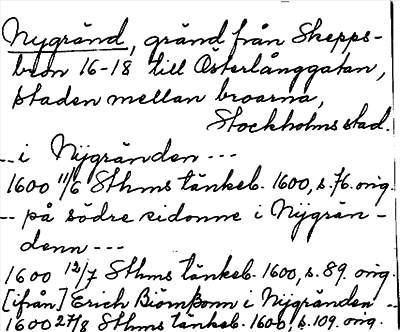 Nygränd, gränd från Skepps-
bron 16-18 till Österlånggatan,
staden mellan broarna,
Stockholms stad.
--- i Nijgränden ---
1600 11/6 Sthms tänkeb. 1600, s. 76. orig.
-- på södre sidonne i Nijgrän-
denn ---
1600 12/7 Sthms tänkeb. 1600, s. 89. orig.
[ifrån] Erich Biörnßonn i Nijgränden --
1600 27/8 Sthms tänkeb. 1600, s. 109. orig.